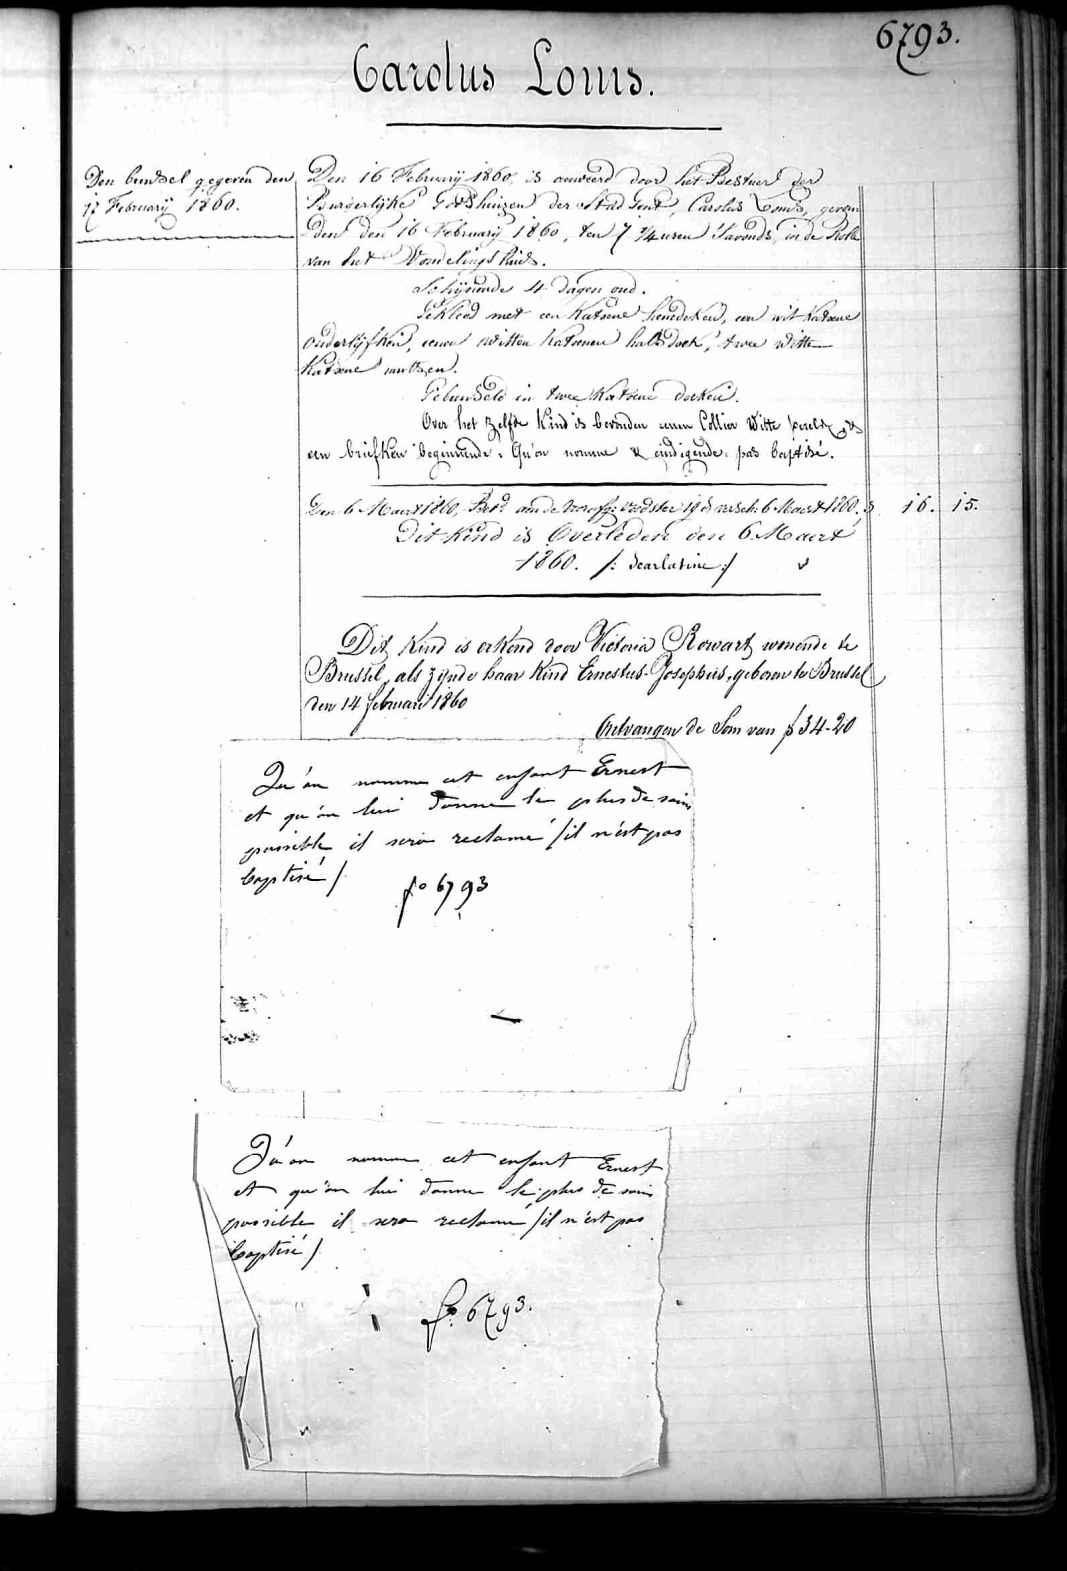 6793.
Carolus Louis.
Den bundsel gegeven den
17 February 1860.
Den 16 February 1860, is aanveerd door het Bestuer der
Burgerlyke Godshuizen der Stad Gent, Carolus Louis, gevon
den den 16 February 1860, ten 7 3/4 uren 's avonds, in de Rolle
van het Vondelingshuis.
Schynende 4 dagen oud.
Gekleed met een Katoene hemdeken, een wit Katoene
onderlyfken, eenen witten Katoenen halsdoek, twee witte
Katoene mutsen.
Gebunseld in twee Katoene doeken.
Over het zelfde Kind is bevonden eenen Collier Witte perels &
een briefken beginnende: Qu'on nomme & eindigende: pas baptisé.
Den 6 Maart 1860, Bet.d aan de voedster 6 Maart 1860. 16. 15.
Dit Kind is Overleden den 6 Maart
1860. /: Scarlatine :/
Dit Kind is erkend door Victoria Rowart wonende te
Brussel, als zynde haar Kind Ernestus-Josephus, geboren te Brussel
den 14 februari 1860
Ontvangen de Som van f 34-20
Qu'on nomme cet enfant Ernest
et qu'on lui donne le plus de soins
possible il sera reclamé /il n'est pas
baptisé/
fo 6793
Qu'on nomme cet enfant Ernest
et qu'on lui donne le plus de soins
possible il sera reclamé /il n'est pas
baptisé/
fo. 6793.